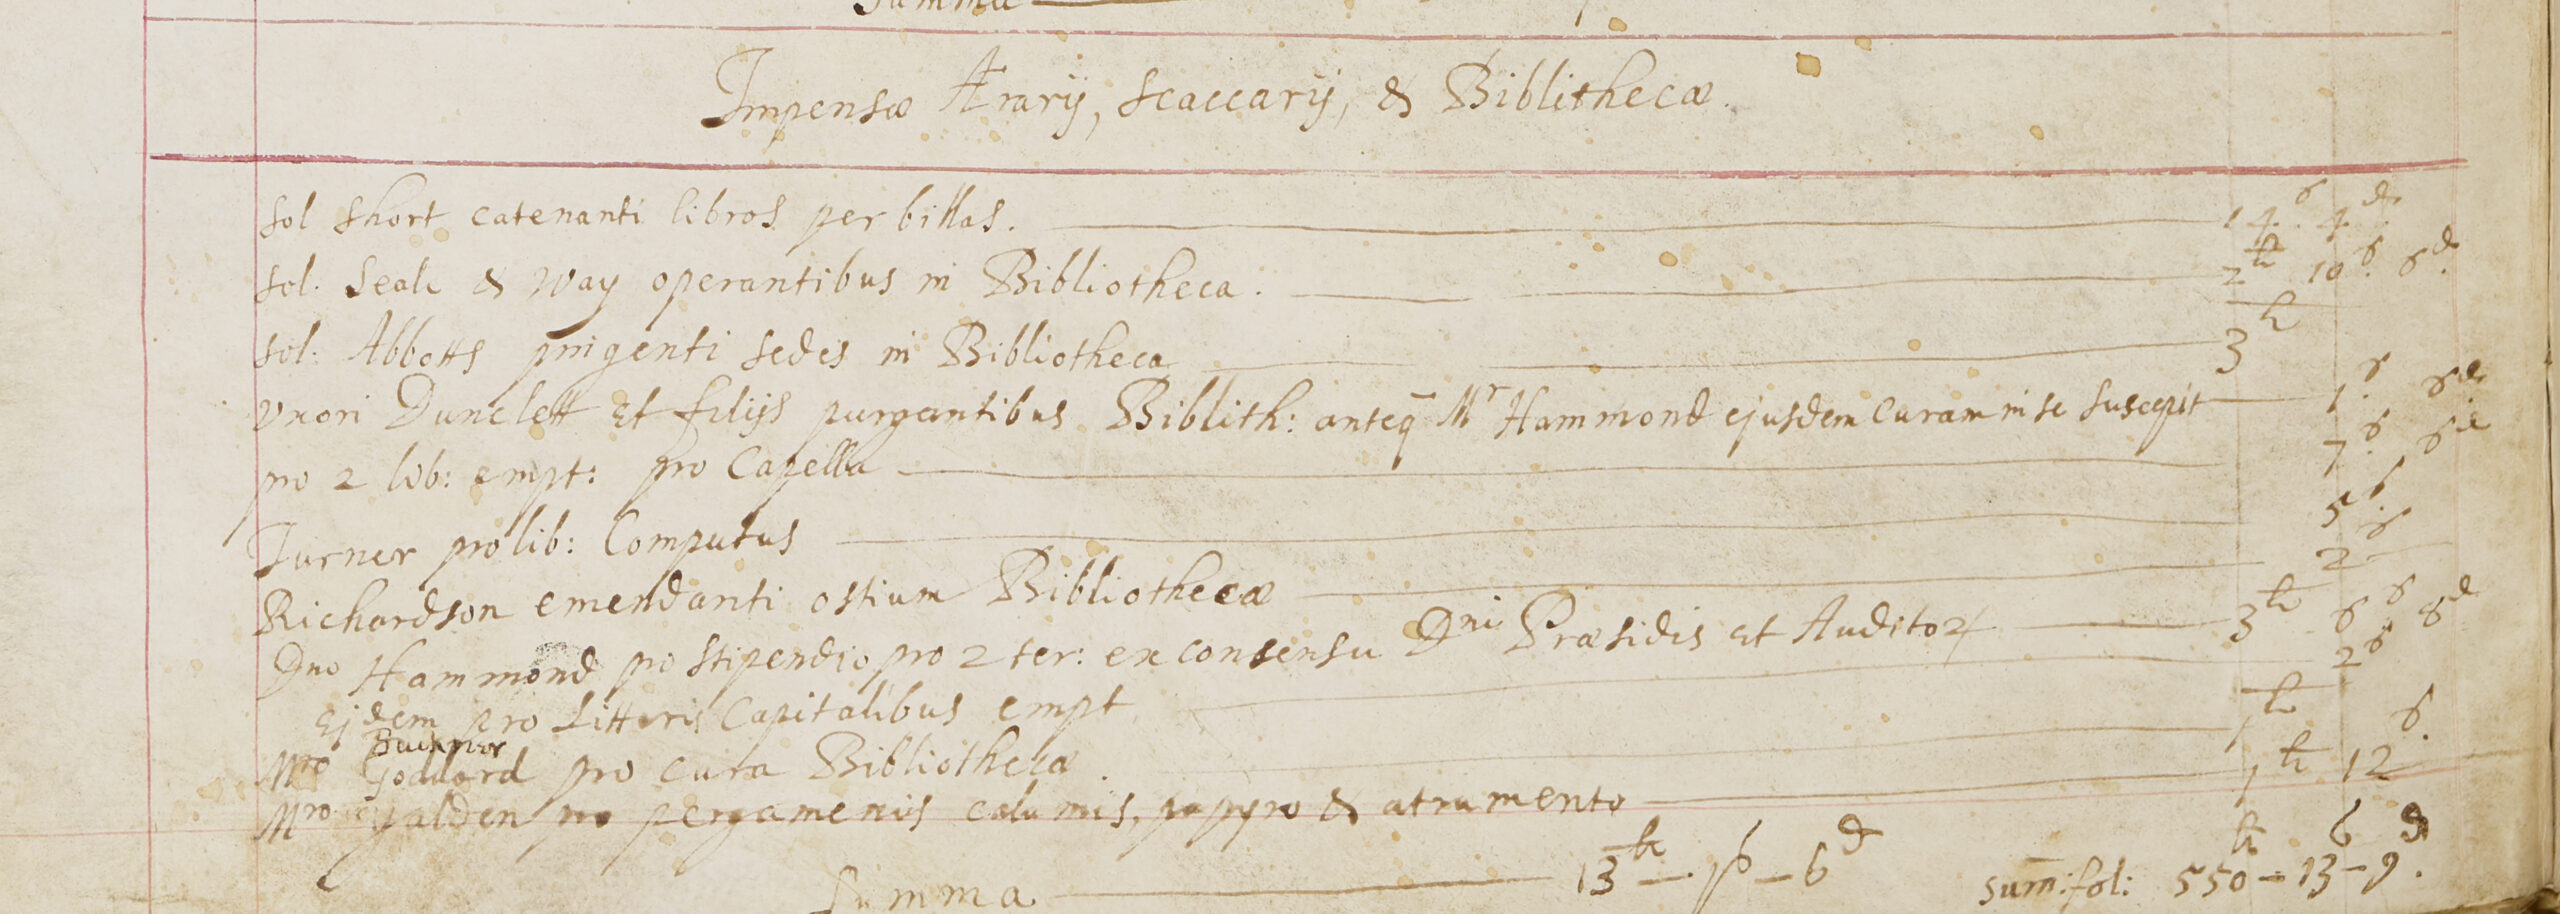 Summa
Impensæ Ærarij, Scaccarij, & Biblithecæ.
sol Short catenanti libros per billas. 14s. 4d.
sol. Seale & Way operantibus in Bibliotheca. 2li 10s. 6d.
sol: Abbotts pingenti sedes in Bibliotheca 3li
Uxori Dunclett et filijs purgantibus Biblith: anteq̄ Mr Hammond ejusdem curam in se suscepit 1s. 6d.
pro 2 lib: empt: pro Capella 7s. 6d
Turner pro lib: Computus 5s.
Richardson emendanti ostium Bibliothecæ 2s
Dno Hammond pro stipendio pro 2 ter: ex consensu Dni Præsidis et Auditoꝝ 3li 6s. 8d
Ejdem pro Litteris Capitalibus empt 2s
Mro Goddard pro cura Bibliothecæ. 1li
Mro Yalden pro pergamenis calamis, papyro & atramento 1li 12s.
Summa 13li - 1s - 6d sum̄: fol: 550li - 13s - 9d.